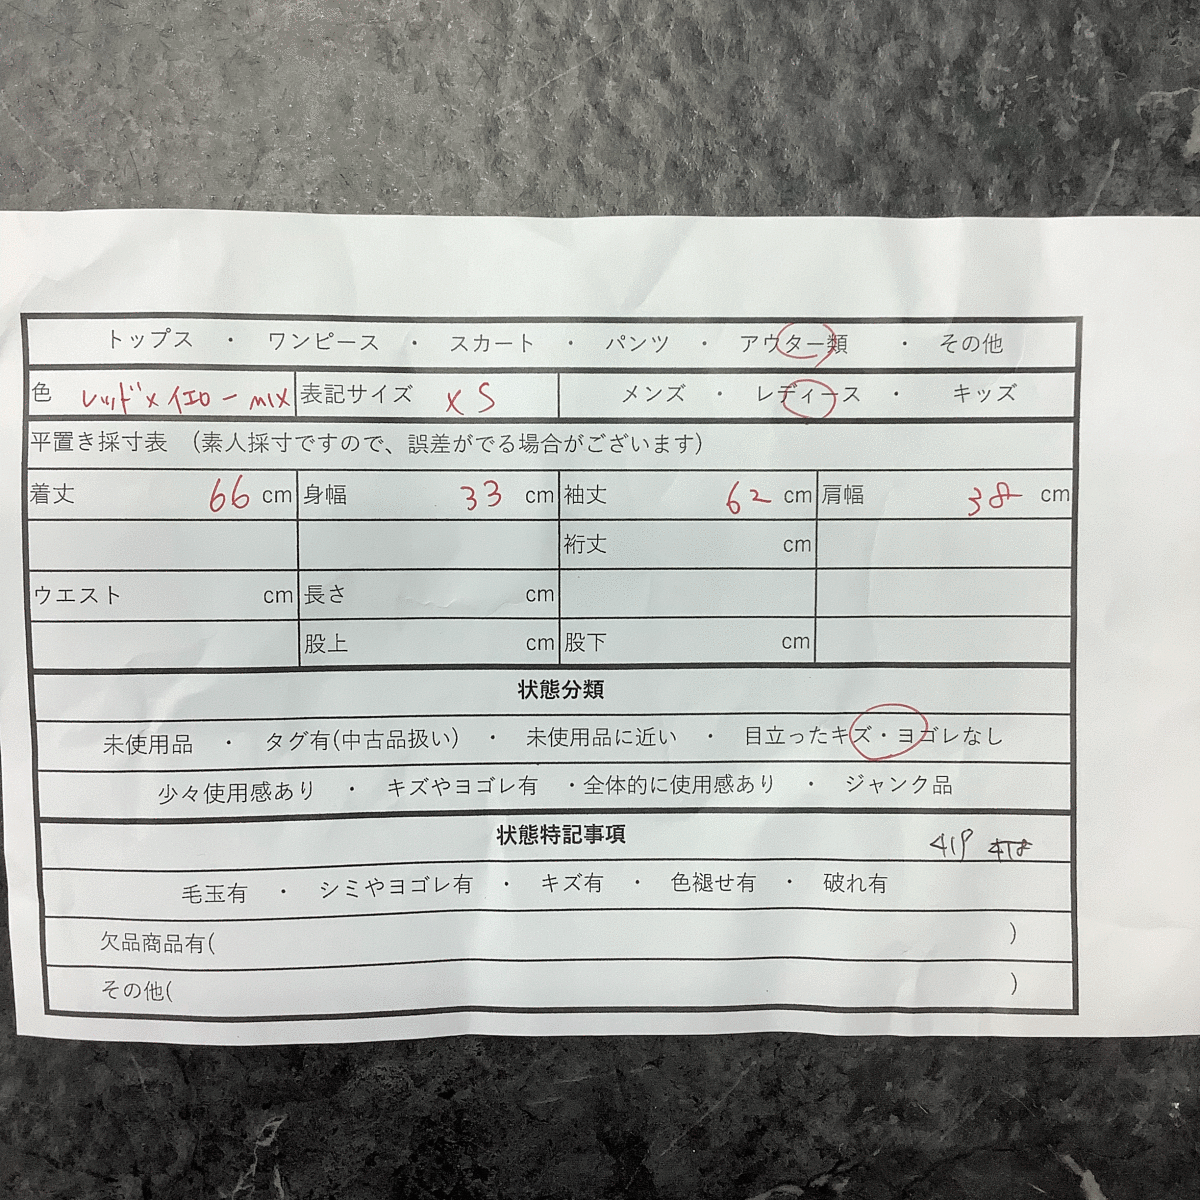 トップス ・ ワンピース ・ スカート ・ パンツ ・ アウター類 ・ その他
色 レッド×イエロー MIX 表記サイズ XS メンズ ・ レディース ・ キッズ
平置き採寸表 （素人採寸ですので、誤差がでる場合がございます）
着丈 66 cm 身幅 33 cm 袖丈 62 cm 肩幅 38 cm
裄丈 cm
ウエスト cm 長さ cm
股上 cm 股下 cm
状態分類
未使用品 ・ タグ有(中古品扱い) ・ 未使用品に近い ・ 目立ったキズ・ヨゴレなし
少々使用感あり ・ キズやヨゴレ有 ・全体的に使用感あり ・ ジャンク品
状態特記事項 419 418
毛玉有 ・ シミやヨゴレ有 ・ キズ有 ・ 色褪せ有 ・ 破れ有
欠品商品有( )
その他( )